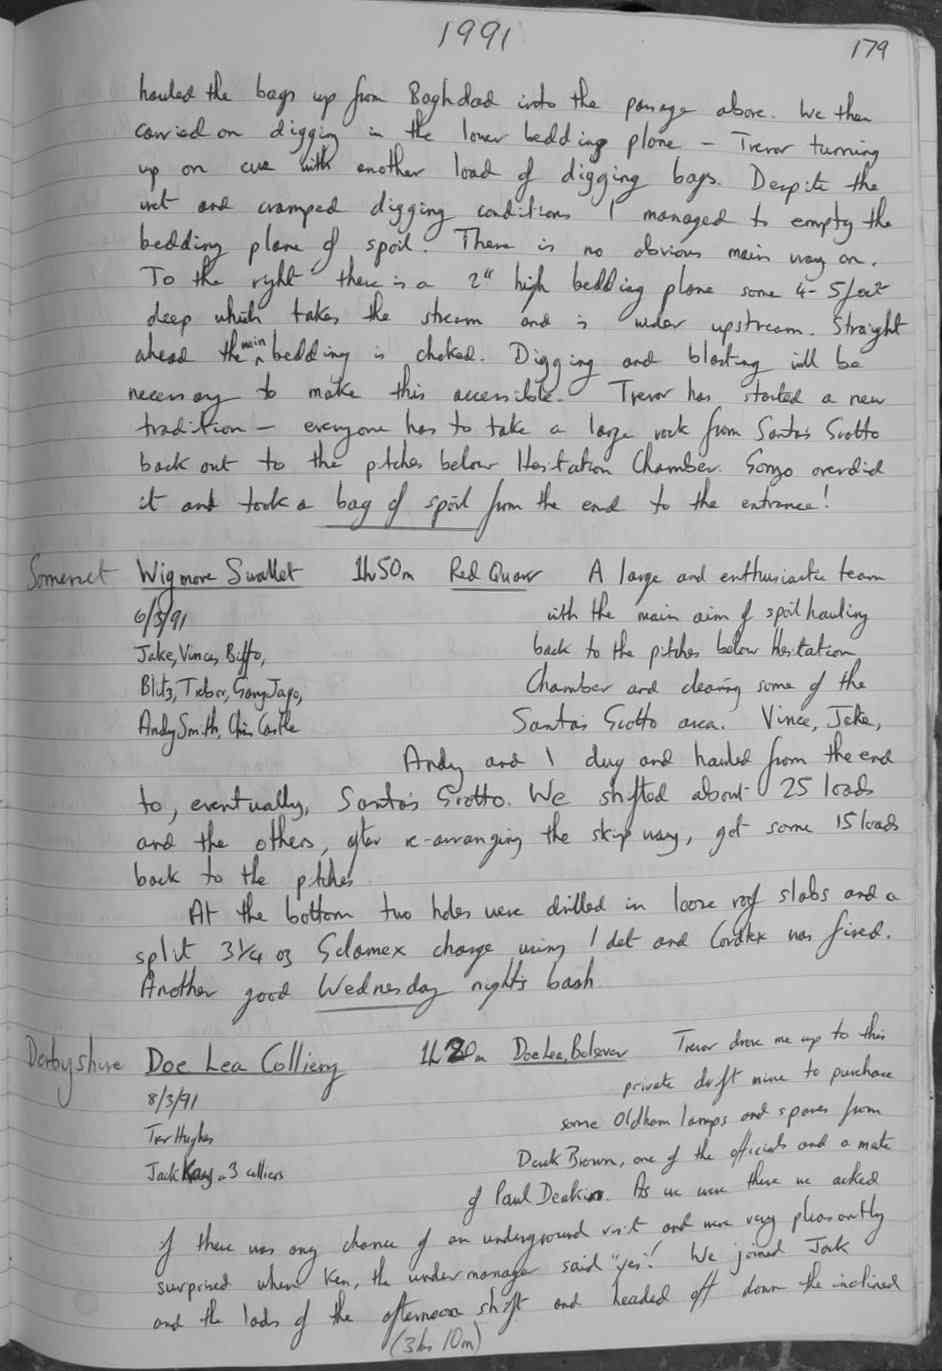 1991
179
hauled the bags up from Baghdad into the passage above. We then
carried on digging in the lower bedding plane – Trevor turning
up on cue with another load of digging bags. Despite the
wet and cramped digging conditions I managed to empty the
bedding plane of spoil. There is no obvious main way on.
To the right there is a 2" high bedding plane some 4-5 feet
deep which takes the stream and is wider upstream. Straight
ahead the main bedding is choked. Digging and blasting will be
necessary to make this accessible. Trevor has started a new
tradition – everyone has to take a large rock from Santa's Grotto
back out to the pitches below Hesitation Chamber. Gonzo overdid
it and took a bag of spoil from the end to the entrance!
Somerset Wigmore Swallet 1h 50m Red Quar A large and enthusiastic team
6/3/91 with the main aim of spoil hauling
Jake, Vince, Biffo, back to the pitches below Hesitation
Blitz, Trebor, Jago, Chamber and clearing some of the
Andy Smith, Chris Castle Santa's Grotto area. Vince, Jake,
Andy and I dug and hauled from the end
to, eventually, Santa's Grotto. We shifted about 25 loads
and the others, after re-arranging the skip way, got some 15 loads
back to the pitches
At the bottom two holes were drilled in loose roof slabs and a
split 3 1/4 oz Gelamex charge using 1 det and Cordtex was fired.
Another good Wednesday night's bash.
Derbyshire Doe Lea Colliery 1h 20m Doe Lea, Bolsover Trevor drove me up to this
8/3/91 private drift mine to purchase
Trev Hughes some Oldham lamps and spares from
Jack + 3 colliers Derek Brown, one of the officials and a mate
of Paul Deakin. As we were there we asked
if there was any chance of an underground visit and were very pleasantly
surprised when Ken, the undermanager said "yes"! We joined Jack
and the lads of the afternoon shift and headed off down the inclined
(3hrs 10m)